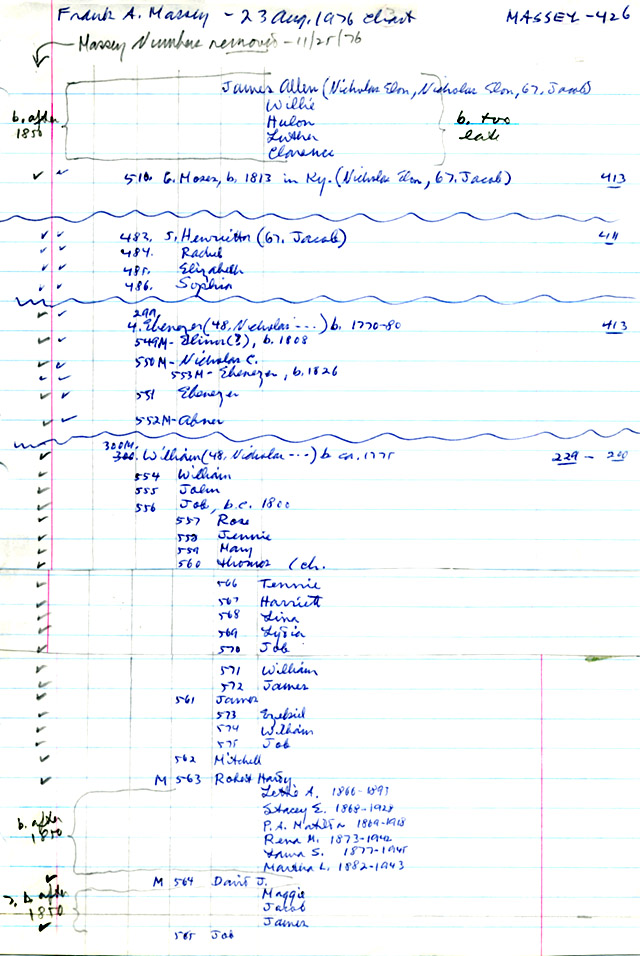 Frank A. Massey - 23 Aug. 1976 chart MASSEY-426
Massey Numbers removed - 11/25/76
James Allen (Nicholas Elon, Nicholas Elon, 67. Jacob)
Willie
b. after 1850
Hulon
b. too late
Luther
Clarence
510. 6. Moses, b. 1813 in Ky. (Nicholas Elon, 67. Jacob) 413
483. 5. Henrietta (67. Jacob) 411
484. Rachel
485. Elizabeth
486. Sophia
299
4. Ebenezer (48. Nicholas ---) b. 1770-80 413
549M- Elinor(?), b. 1808
550M- Nicholas C.
553M- Ebenezer, b. 1826
551 Ebenezer
552M- Abner
300M.
300. William (48. Nicholas ---) b ca. 1775 229 - 230
554 William
555 John
556 Job, b.c. 1800
557 Rose
558 Jennie
559 Mary
560 Thomas (ch.
566 Tennie
567 Harriett
568 Lina
569 Lydia
570 Job
571 William
572 James
561 James
573 Ezekiel
574 William
575 Job
562 Mitchell
M 563 Robert Hardy
Lettie A. 1866-1897
Stacey E. 1868-1928
b. after 1850
P.A. Matilda 1869-1918
Rena M. 1873-1942
Laura S. 1877-1945
Martha L. 1882-1943
M 564 David J.
Maggie
b. after 1850
Jacob
James
565 Job